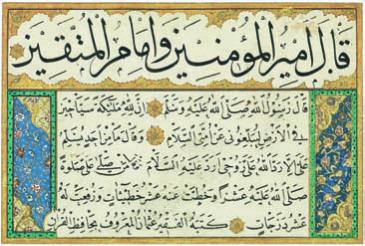 قال امير المؤمنين وامام المتقين
قال رسول الله صلى الله عليه وسلم ان لله ملئكة سياحين
في الارض يبلغونى عن امتى السلام وقال ما من احد يسلم
على الا رد الله على روحى حتى ارد عليه السلام من صلى على صلوة
صلى الله عليه عشرا وحطت عنه عشر خطيئات ورفعت له
عشر درجات كتبه الفقير عثمان المعروف بحافظ القرآن